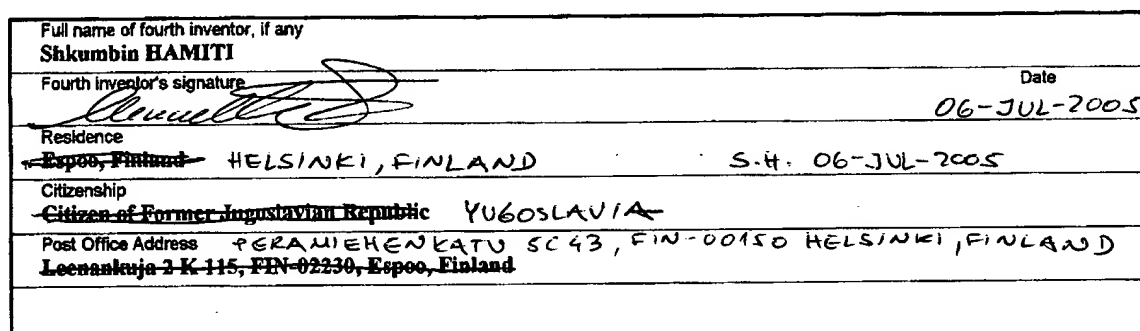 Full name of fourth inventor, if any
Shkumbin HAMITI
Fourth inventor's signature
Date
06-JUL-2005
Residence
Espoo, Finland HELSINKI, FINLAND S.H. 06-JUL-2005
Citizenship
Citizen of Former Jugoslavian Republic YUGOSLAVIA
Post Office Address PERAMIEHENKATU 5C43, FIN-00150 HELSINKI, FINLAND
Leenankuja 2 K 115, FIN-02230, Espoo, Finland